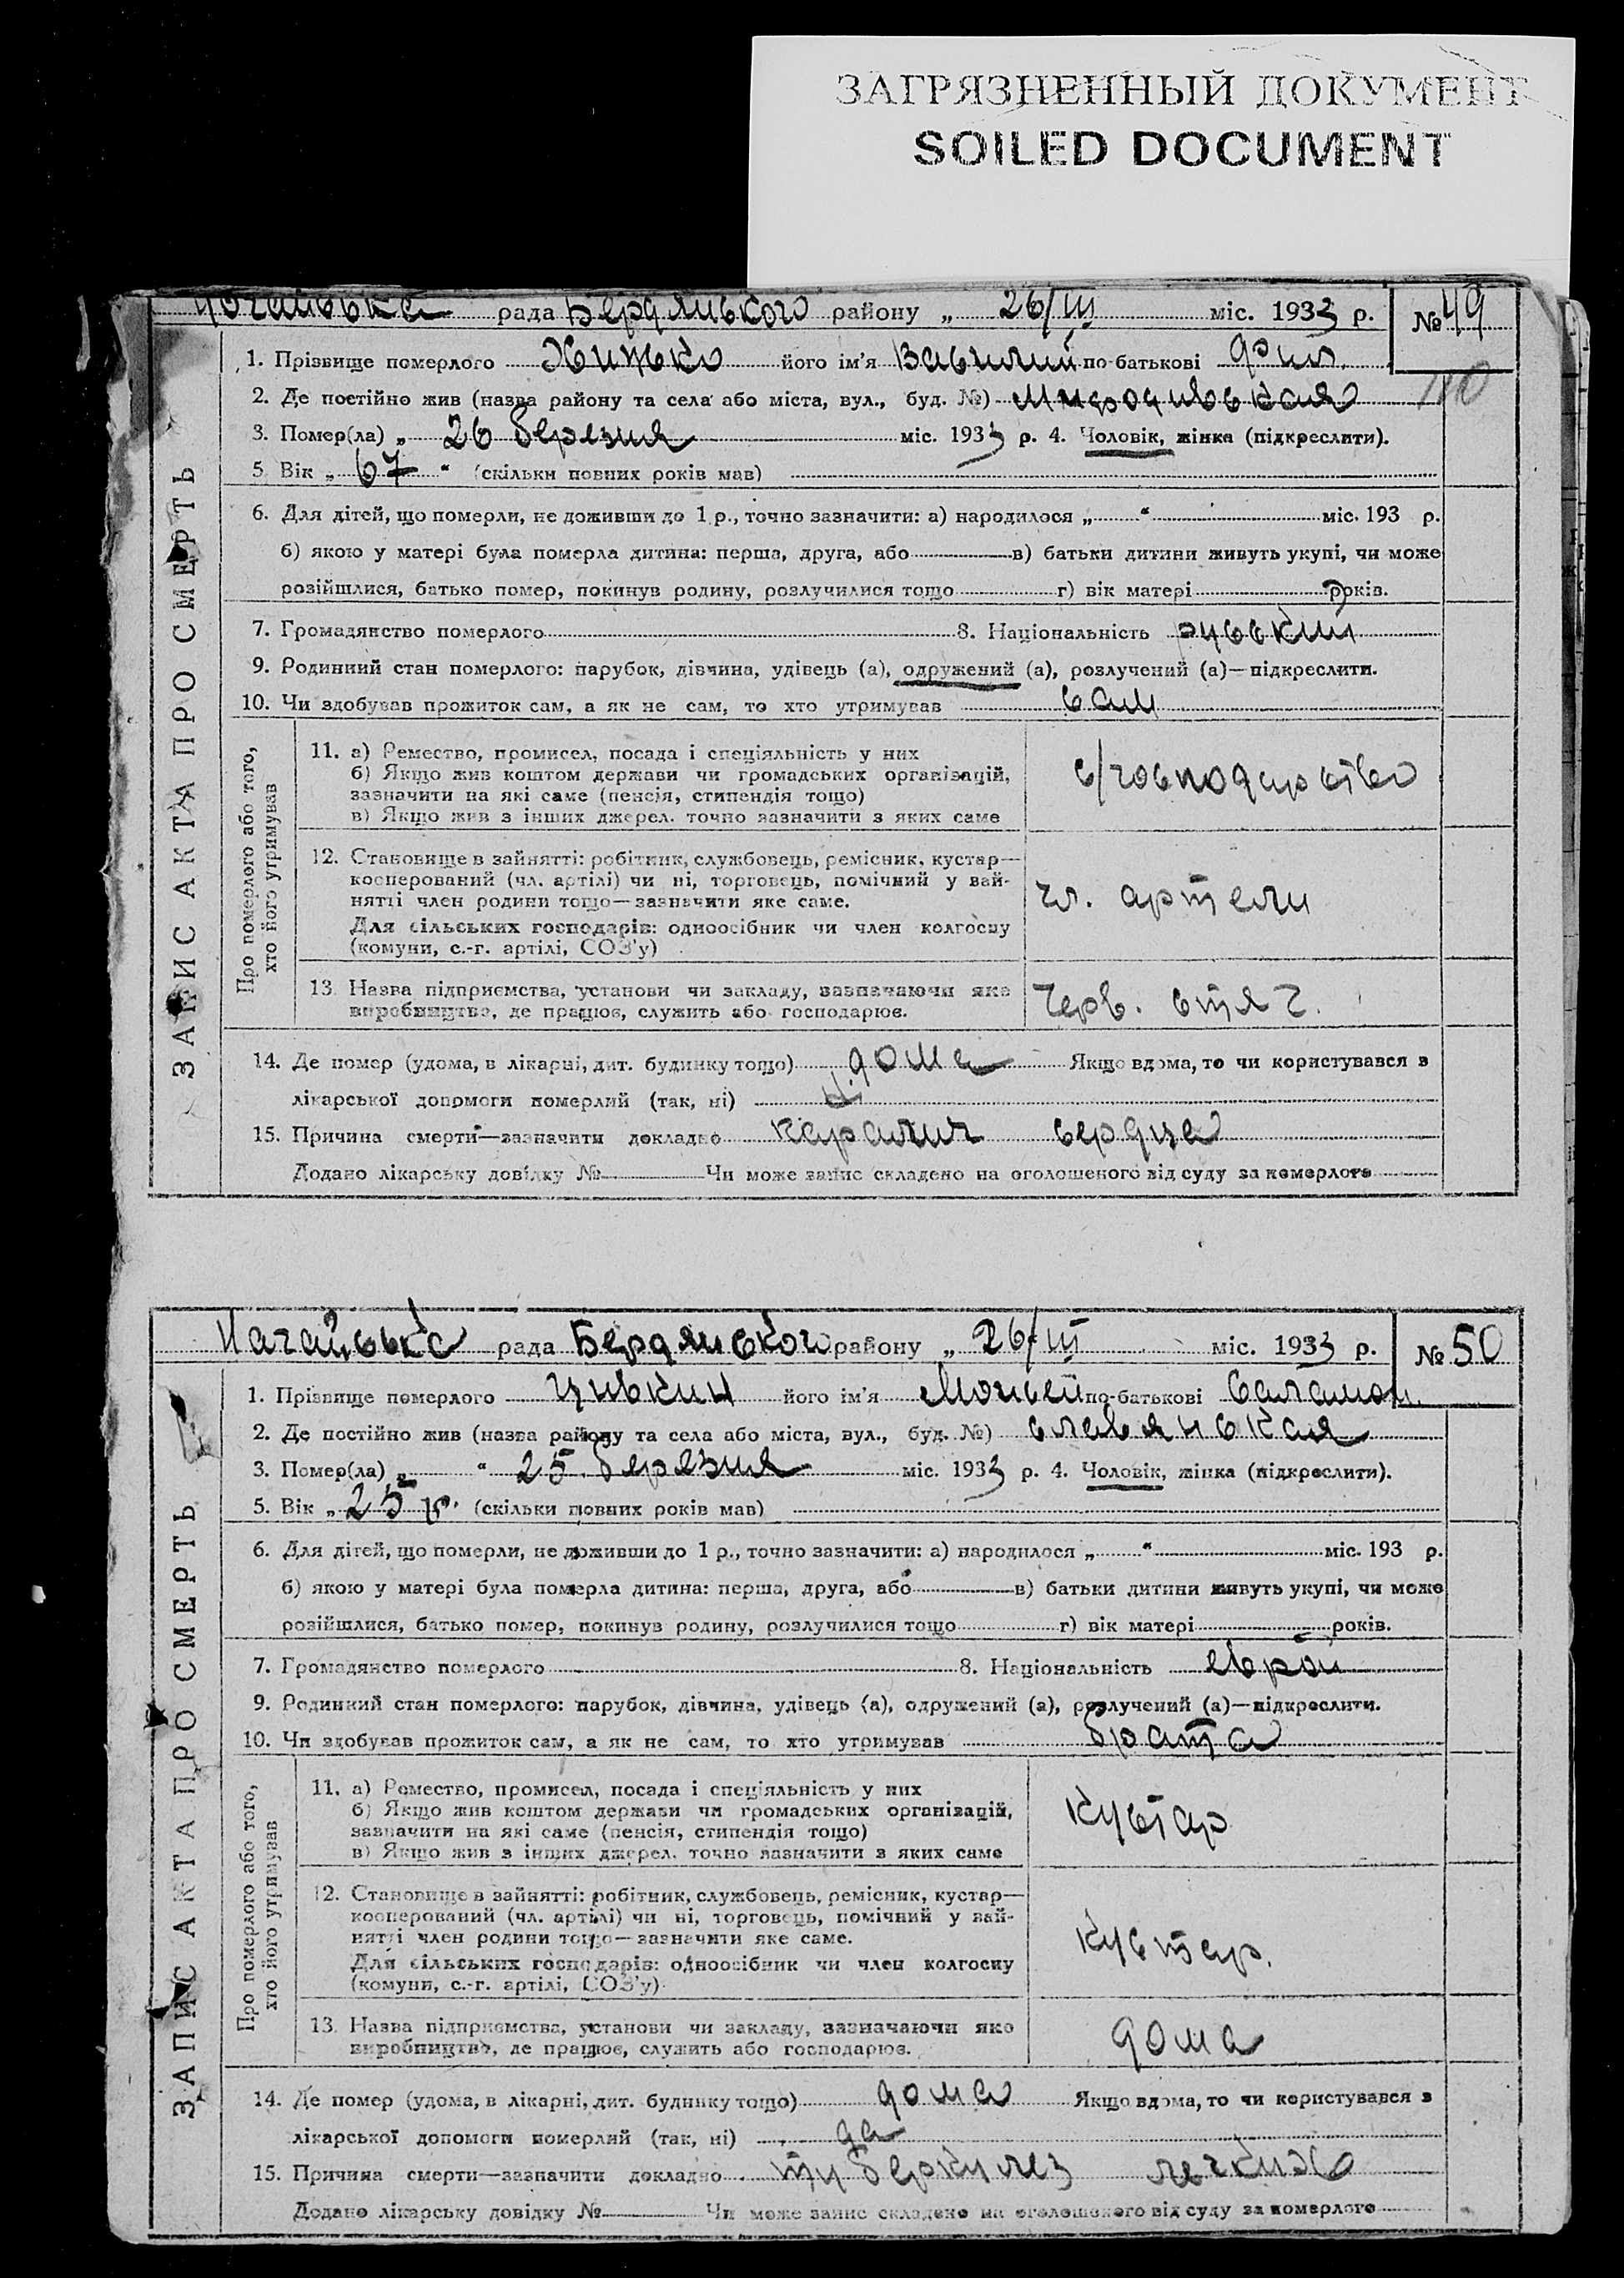 ЗАГРЯЗНЕННЫЙ ДОКУМЕНТ
SOILED DOCUMENT
рада Бердянського району „ 26/III міс. 1933 р. № 49
1. Прізвище померлого його ім'я по-батькові
110
2. Де постійно жив (назва району та села або міста, вул., буд. №)
3. Помер(ла) „ 26 березня міс. 1933 р. 4. Чоловік, жінка (підкреслити).
5. Вік „ 67 “ (скільки повних років мав)
6. Для дітей, що померли, не доживши до 1 р., точно зазначити: а) народилося „ “ міс. 193 р.
б) якою у матері була померла дитина: перша, друга, або в) батьки дитини живуть укупі, чи може
розійшлися, батько помер, покинув родину, розлучилися тощо г) вік матері років.
7. Громадянство померлого 8. Національність руський
9. Родинний стан померлого: парубок, дівчина, удівець (а), одружений (а), розлучений (а)—підкреслити.
10. Чи здобував прожиток сам, а як не сам, то хто утримував сам
ЗАПИС АКТА ПРО СМЕРТЬ
Про померлого або того,
хто його утримував
11. а) Ремество, промисел, посада і спеціяльність у них
б) Якщо жив коштом держави чи громадських організацій,
зазначити на які саме (пенсія, стипендія тощо)
в) Якщо жив з інших джерел. точно зазначити з яких саме
с/господарство
12. Становище в зайнятті: робітник, службовець, ремісник, кустар—
кооперований (чл. артілі) чи ні, торговець, помічний у зай-
нятті член родини тощо—зазначити яке саме.
Для сільських господарів: одноосібник чи член колгоспу
(комуни, с.-г. артілі, СОЗ'у)
чл. артели
13. Назва підприємства, установи чи закладу, зазначаючи яке
виробництво, де працює, служить або господарює.
Черв. стяг.
14. Де помер (удома, в лікарні, дит. будинку тощо) дома Якщо вдома, то чи користувався з
лікарської допомоги померлий (так, ні)
15. Причина смерти—зазначити докладно паралич сердца
Додано лікарську довідку № Чи може запис складено на оголошеного від суду за померлого
Нагайська рада Бердянського району „ 26/III міс. 1933 р. № 50
1. Прізвище померлого Цивкин його ім'я Мойсей по-батькові Саламон.
2. Де постійно жив (назва району та села або міста, вул., буд. №) славянская
3. Помер(ла) „ “ 25 березня міс. 1933 р. 4. Чоловік, жінка (підкреслити).
5. Вік „ 25 р. (скільки повних років мав)
6. Для дітей, що померли, не доживши до 1 р., точно зазначити: а) народилося „ “ міс. 193 р.
б) якою у матері була померла дитина: перша, друга, або в) батьки дитини живуть укупі, чи може
розійшлися, батько помер, покинув родину, розлучилися тощо г) вік матері років.
7. Громадянство померлого 8. Національність еврей
9. Родинний стан померлого: парубок, дівчина, удівець (а), одружений (а), розлучений (а)—підкреслити.
10. Чи здобував прожиток сам, а як не сам, то хто утримував брата
ЗАПИС АКТА ПРО СМЕРТЬ
Про померлого або того,
хто його утримував
11. а) Ремество, промисел, посада і спеціяльність у них
б) Якщо жив коштом держави чи громадських організацій,
зазначити на які саме (пенсія, стипендія тощо)
в) Якщо жив з інших джерел. точно зазначити з яких саме
кустар
12. Становище в зайнятті: робітник, службовець, ремісник, кустар—
кооперований (чл. артілі) чи ні, торговець, помічний у зай-
нятті член родини тощо—зазначити яке саме.
Для сільських господарів: одноосібник чи член колгоспу
(комуни, с.-г. артілі, СОЗ'у)
кустар.
13. Назва підприємства, установи чи закладу, зазначаючи яке
виробництво, де працює, служить або господарює.
дома
14. Де помер (удома, в лікарні, дит. будинку тощо) дома Якщо вдома, то чи користувався з
лікарської допомоги померлий (так, ні) да
15. Причина смерти—зазначити докладно туберкулез легких
Додано лікарську довідку № Чи може запис складено на оголошеного від суду за померлого